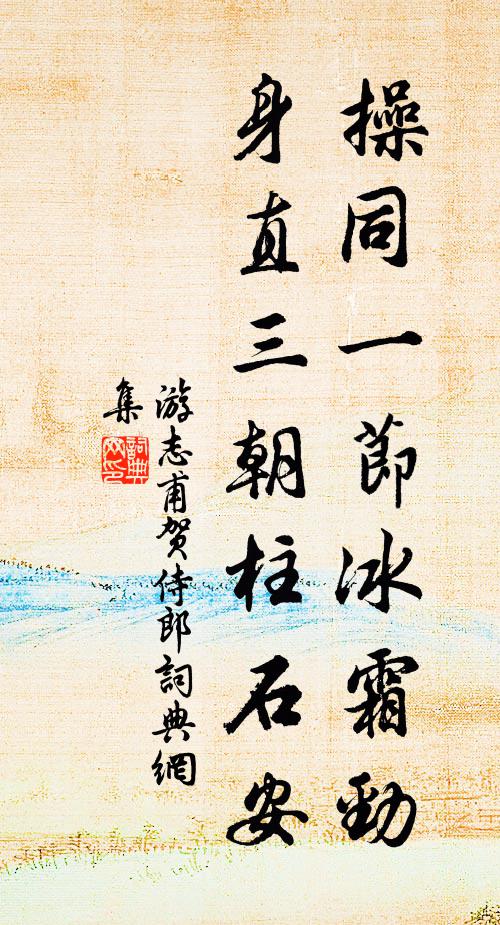 操同一節冰霜勁
身直三朝柱石安
游志甫贺侍郎詞典網
集
詞典
网印